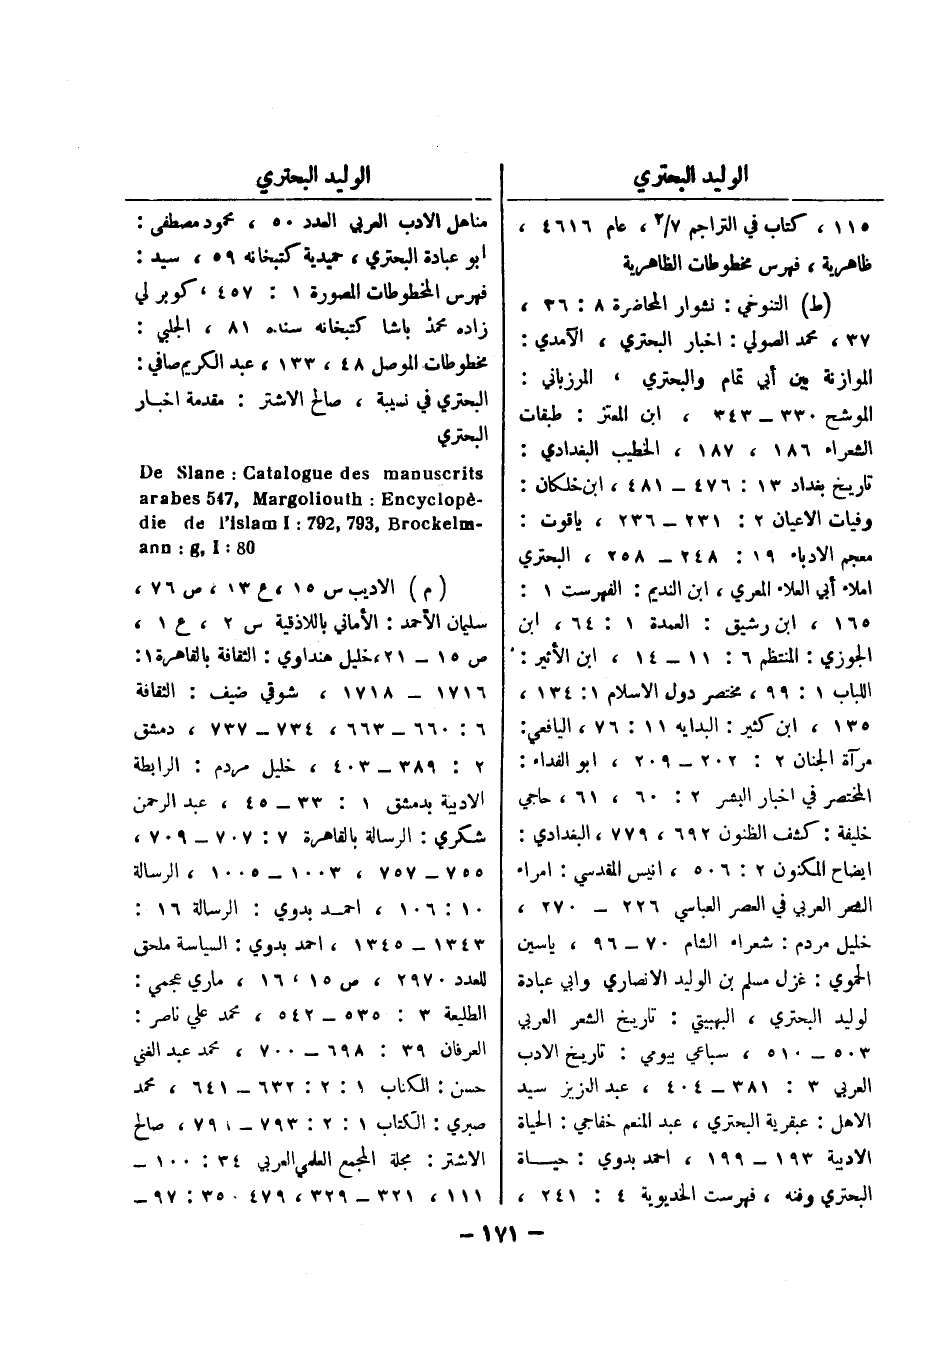 الوليد البحتري
١١٥ ، كتاب في التراجم ٢/٧ ، عام ٤٦١٦ ،
ظاهرية ، فهرس مخطوطات الظاهرية
(ط) التنوخي : نشوار المحاضرة ٨ : ٣٦ ،
٣٧ ، محمد الصولي : اخبار البحتري ، الآمدي :
الموازنة بين أبي تمام والبحتري ، المرزباني :
الموشح ٣٣٠ ـ ٣٤٣ ، ابن المعتز : طبقات
الشعراء ١٨٦ ، ١٨٧ ، الخطيب البغدادي :
تاريخ بغداد ١٣ : ٤٧٦ ـ ٤٨١ ، ابن خلكان :
وفيات الاعيان ٢ : ٢٣١ ـ ٢٣٦ ، ياقوت :
معجم الادباء ١٩ : ٢٤٨ ـ ٢٥٨ ، البحتري
املاء أبي العلاء المعري ، ابن النديم : الفهرست ١ :
١٦٥ ، ابن رشيق : العمدة ١ : ٦٤ ، ابن
الجوزي : المنتظم ٦ : ١١ ـ ١٤ ، ابن الأثير :
اللباب ١ : ٩٩ ، مختصر دول الاسلام ١ : ١٣٤ ،
١٣٥ ، ابن كثير : البدايه ١١ : ٧٦ ، اليافعي :
مرآة الجنان ٢ : ٢٠٢ ـ ٢٠٩ ، ابو الفداء :
المختصر في اخبار البشر ٢ : ٦٠ ، ٦١ ، حاجي
خليفة : كشف الظنون ٦٩٢ ، ٧٧٩ ، البغدادي :
ايضاح المكنون ٢ : ٥٠٦ ، انيس المقدسي : امراء
الشعر العربي في العصر العباسي ٢٢٦ ـ ٢٧٠ ،
خليل مردم : شعراء الشام ٧٠ ـ ٩٦ ، ياسين
الحموي : غزل مسلم بن الوليد الانصاري وابي عبادة
لوليد البحتري ، البهبيتي : تاريخ الشعر العربي
٥٠٣ ـ ٥١٠ ، سباعي بيومي : تاريخ الادب
العربي ٣ : ٣٨١ ـ ٤٠٤ ، عبد العزيز سيد
الاهل : عبقرية البحتري ، عبد المنعم خفاجي : الحياة
الادبية ١٩٣ ـ ١٩٩ ، احمد بدوي : حيـــاة
البحتري وفنه ، فهرست الخديوية ٤ : ٢٤١ ،
الوليد البحتري
مناهل الادب العربي العدد ٥٠ ، محمود مصطفى :
ابو عبادة البحتري ، حميدية كتبخانه ٥٩ ، سيد :
فهرس المخطوطات المصورة ١ : ٤٥٧ ، كوبر لي
زاده محمد باشا كتبخانه سنده ٨١ ، الجلبي :
مخطوطات الموصل ٤٨ ، ١٣٣ ، عبد الكريم صافي :
البحتري في نسيبة ، صالح الاشتر : مقدمة اخبـار
البحتري
De Slane : Catalogue des manuscrits
arabes 547, Margoliouth : Encyclopé-
die de l'islam I : 792, 793, Brockelm-
ann : g, I : 80
(م) الاديب س ١٥ ، ع ١٣ ، ص ٧٦ ،
سليمان الأحمد : الأماني باللاذقية س ٢ ، ع ١ ،
ص ١٥ ـ ٢١ ، خليل هنداوي : الثقافة بالقاهرة ١ :
١٧١٦ ـ ١٧١٨ ، شوقي ضيف : الثقافة
٦ : ٦٦٠ ـ ٦٦٣ ، ٧٣٤ ـ ٧٣٧ ، دمشق
٢ : ٣٨٩ ـ ٤٠٣ ، خليل مردم : الرابطة
الادبية بدمشق ١ : ٣٣ ـ ٤٥ ، عبد الرحمن
شكري : الرسالة بالقاهرة ٧ : ٧٠٧ ـ ٧٠٩ ،
٧٥٥ ـ ٧٥٧ ، ١٠٠٣ ـ ١٠٠٥ ، الرسالة
١٠ : ١٠٦ ، احمــد بدوي : الرسالة ١٦ :
١٣٤٣ ـ ١٣٤٥ ، احمد بدوي : السياسة ملحق
للعدد ٢٩٧٠ ، ص ١٥ ، ١٦ ، ماري عجمي :
الطليعة ٣ : ٥٣٥ ـ ٥٤٢ ، محمد علي ناصر :
العرفان ٣٩ : ٦٩٨ ـ ٧٠٠ ، محمد عبد الغني
حسن : الكتاب ١ : ٢ : ٦٣٢ ـ ٦٤١ ، محمد
صبري : الكتاب ١ : ٢ : ٧٩٣ ـ ٧٩٩ ، صالح
الاشتر : مجلة المجمع العلمي العربي ٣٤ : ١٠٠ ـ
١١١ ، ٣٢١ ـ ٣٢٩ ، ٤٧٩ ٣٥٠ : ٩٧ ـ
ـ ١٧١ ـ